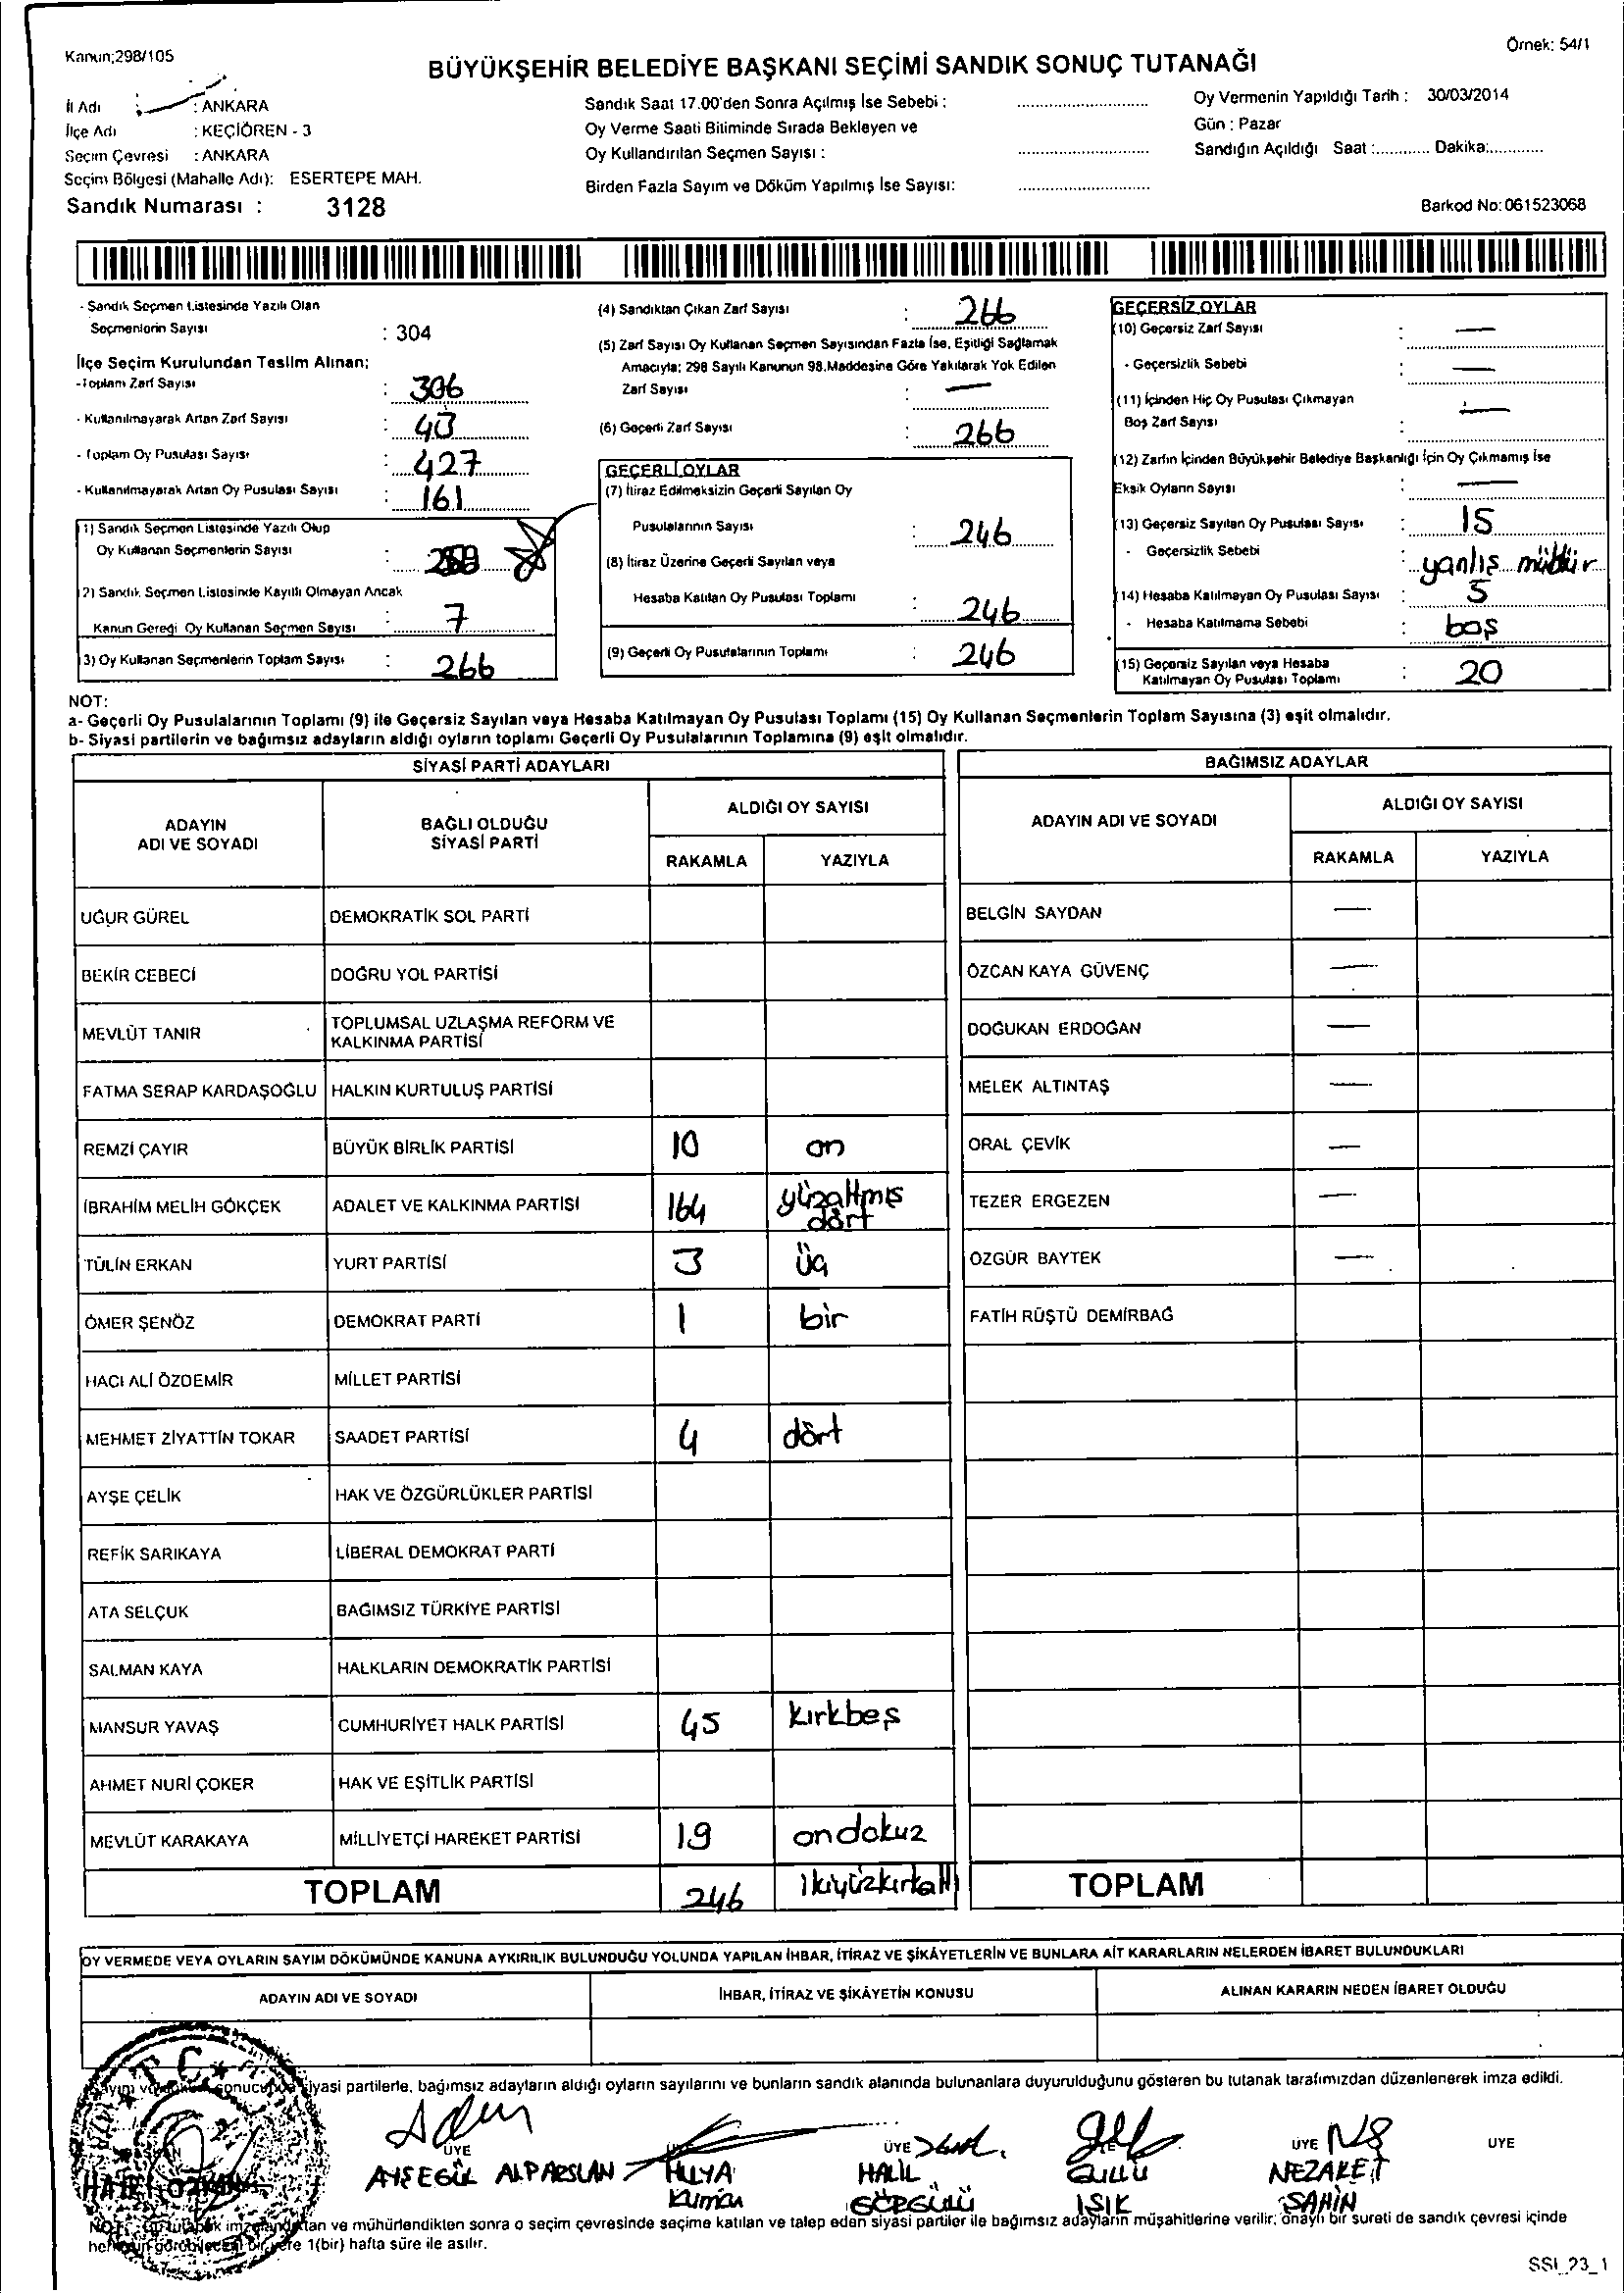 Kanun;298/105
Örnek: 54/1
BÜYÜKŞEHİR BELEDİYE BAŞKANI SEÇİMİ SANDIK SONUÇ TUTANAĞI
İl Adı : ANKARA
İlçe Adı : KEÇİÖREN - 3
Seçim Çevresi : ANKARA
Seçim Bölgesi (Mahalle Adı): ESERTEPE MAH.
Sandık Numarası : 3128
Sandık Saat 17.00'den Sonra Açılmış İse Sebebi :
Oy Verme Saati Bitiminde Sırada Bekleyen ve
Oy Kullandırılan Seçmen Sayısı :
Birden Fazla Sayım ve Döküm Yapılmış İse Sayısı:
Oy Vermenin Yapıldığı Tarih : 30/03/2014
Gün : Pazar
Sandığın Açıldığı Saat :............ Dakika:............
Barkod No:061523068
- Sandık Seçmen Listesinde Yazılı Olan
Seçmenlerin Sayısı : 304
İlçe Seçim Kurulundan Teslim Alınan;
-Toplam Zarf Sayısı : 306
- Kullanılmayarak Artan Zarf Sayısı : 40
- Toplam Oy Pusulası Sayısı : 427
- Kullanılmayarak Artan Oy Pusulası Sayısı : 161
1) Sandık Seçmen Listesinde Yazılı Olup
Oy Kullanan Seçmenlerin Sayısı :
2) Sandık Seçmen Listesinde Kayıtlı Olmayan Ancak
Kanun Gereği Oy Kullanan Seçmen Sayısı : 7
3) Oy Kullanan Seçmenlerin Toplam Sayısı : 266
(4) Sandıktan Çıkan Zarf Sayısı : 266
(5) Zarf Sayısı Oy Kullanan Seçmen Sayısından Fazla İse, Eşitliği Sağlamak
Amacıyla; 298 Sayılı Kanunun 98.Maddesine Göre Yakılarak Yok Edilen
Zarf Sayısı : —
(6) Geçerli Zarf Sayısı : 266
GEÇERLİ OYLAR
(7) İtiraz Edilmeksizin Geçerli Sayılan Oy
Pusulalarının Sayısı : 246
(8) İtiraz Üzerine Geçerli Sayılan veya
Hesaba Katılan Oy Pusulası Toplamı : 246
(9) Geçerli Oy Pusulalarının Toplamı : 246
GEÇERSİZ OYLAR
(10) Geçersiz Zarf Sayısı : —
- Geçersizlik Sebebi : —
(11) İçinden Hiç Oy Pusulası Çıkmayan
Boş Zarf Sayısı : —
(12) Zarfın İçinden Büyükşehir Belediye Başkanlığı İçin Oy Çıkmamış İse
Eksik Oyların Sayısı : —
(13) Geçersiz Sayılan Oy Pusulası Sayısı : 15
- Geçersizlik Sebebi : yanlış mühür
(14) Hesaba Katılmayan Oy Pusulası Sayısı : 5
- Hesaba Katılmama Sebebi : boş
(15) Geçersiz Sayılan veya Hesaba
Katılmayan Oy Pusulası Toplamı : 20
NOT:
a- Geçerli Oy Pusulalarının Toplamı (9) ile Geçersiz Sayılan veya Hesaba Katılmayan Oy Pusulası Toplamı (15) Oy Kullanan Seçmenlerin Toplam Sayısına (3) eşit olmalıdır.
b- Siyasi partilerin ve bağımsız adayların aldığı oyların toplamı Geçerli Oy Pusulalarının Toplamına (9) eşit olmalıdır.
SİYASİ PARTİ ADAYLARI
ADAYIN
ADI VE SOYADI
BAĞLI OLDUĞU
SİYASİ PARTİ
ALDIĞI OY SAYISI
RAKAMLA YAZIYLA
UĞUR GÜREL DEMOKRATİK SOL PARTİ
BEKİR CEBECİ DOĞRU YOL PARTİSİ
MEVLÜT TANIR TOPLUMSAL UZLAŞMA REFORM VE
KALKINMA PARTİSİ
FATMA SERAP KARDAŞOĞLU HALKIN KURTULUŞ PARTİSİ
REMZİ ÇAYIR BÜYÜK BİRLİK PARTİSİ 10 on
İBRAHİM MELİH GÖKÇEK ADALET VE KALKINMA PARTİSİ 164 yüzaltmış
dört
TÜLİN ERKAN YURT PARTİSİ 3 üç
ÖMER ŞENÖZ DEMOKRAT PARTİ 1 bir
HACI ALİ ÖZDEMİR MİLLET PARTİSİ
MEHMET ZİYATTİN TOKAR SAADET PARTİSİ 4 dört
AYŞE ÇELİK HAK VE ÖZGÜRLÜKLER PARTİSİ
REFİK SARIKAYA LİBERAL DEMOKRAT PARTİ
ATA SELÇUK BAĞIMSIZ TÜRKİYE PARTİSİ
SALMAN KAYA HALKLARIN DEMOKRATİK PARTİSİ
MANSUR YAVAŞ CUMHURİYET HALK PARTİSİ 45 kırkbeş
AHMET NURİ ÇOKER HAK VE EŞİTLİK PARTİSİ
MEVLÜT KARAKAYA MİLLİYETÇİ HAREKET PARTİSİ 19 ondokuz
TOPLAM 246 ikiyüzkırkaltı
BAĞIMSIZ ADAYLAR
ADAYIN ADI VE SOYADI
ALDIĞI OY SAYISI
RAKAMLA YAZIYLA
BELGİN SAYDAN —
ÖZCAN KAYA GÜVENÇ —
DOĞUKAN ERDOĞAN —
MELEK ALTINTAŞ —
ORAL ÇEVİK —
TEZER ERGEZEN —
ÖZGÜR BAYTEK —
FATİH RÜŞTÜ DEMİRBAĞ
TOPLAM
OY VERMEDE VEYA OYLARIN SAYIM DÖKÜMÜNDE KANUNA AYKIRILIK BULUNDUĞU YOLUNDA YAPILAN İHBAR, İTİRAZ VE ŞİKÂYETLERİN VE BUNLARA AİT KARARLARIN NELERDEN İBARET BULUNDUKLARI
ADAYIN ADI VE SOYADI İHBAR, İTİRAZ VE ŞİKÂYETİN KONUSU ALINAN KARARIN NEDEN İBARET OLDUĞU
T.C.
siyasi partilerle, bağımsız adayların aldığı oyların sayılarını ve bunların sandık alanında bulunanlara duyurulduğunu gösteren bu tutanak tarafımızdan düzenlenerek imza edildi.
ÜYE ÜYE ÜYE ÜYE
AYŞEGÜL ALPARSLAN HÜLYA HALİL GÜLLÜ NEZAKET
Kuman GÖRGÜLÜ IŞIK ŞAHİN
ve mühürlendikten sonra o seçim çevresinde seçime katılan ve talep eden siyasi partiler ile bağımsız adayların müşahitlerine verilir; onaylı bir sureti de sandık çevresi içinde
1(bir) hafta süre ile asılır.
SSI_23_1